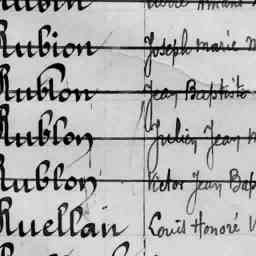 Rubion Joseph Marie
Rublon Jean Baptiste
Rublon Julien Jean
Rublon Victor Jean Bap
Ruellan Louis Honoré